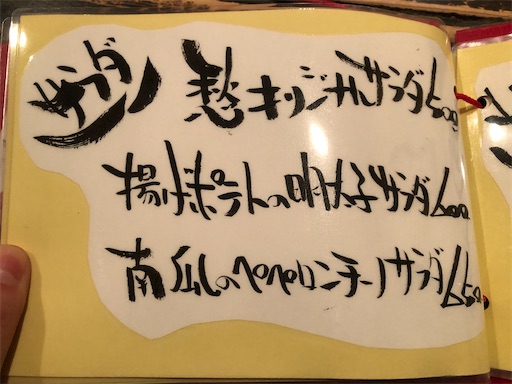 サラダ
愁オリジナルサラダ600
揚げポテトの明太子サラダ600
南瓜のペペロンチーノサラダ650